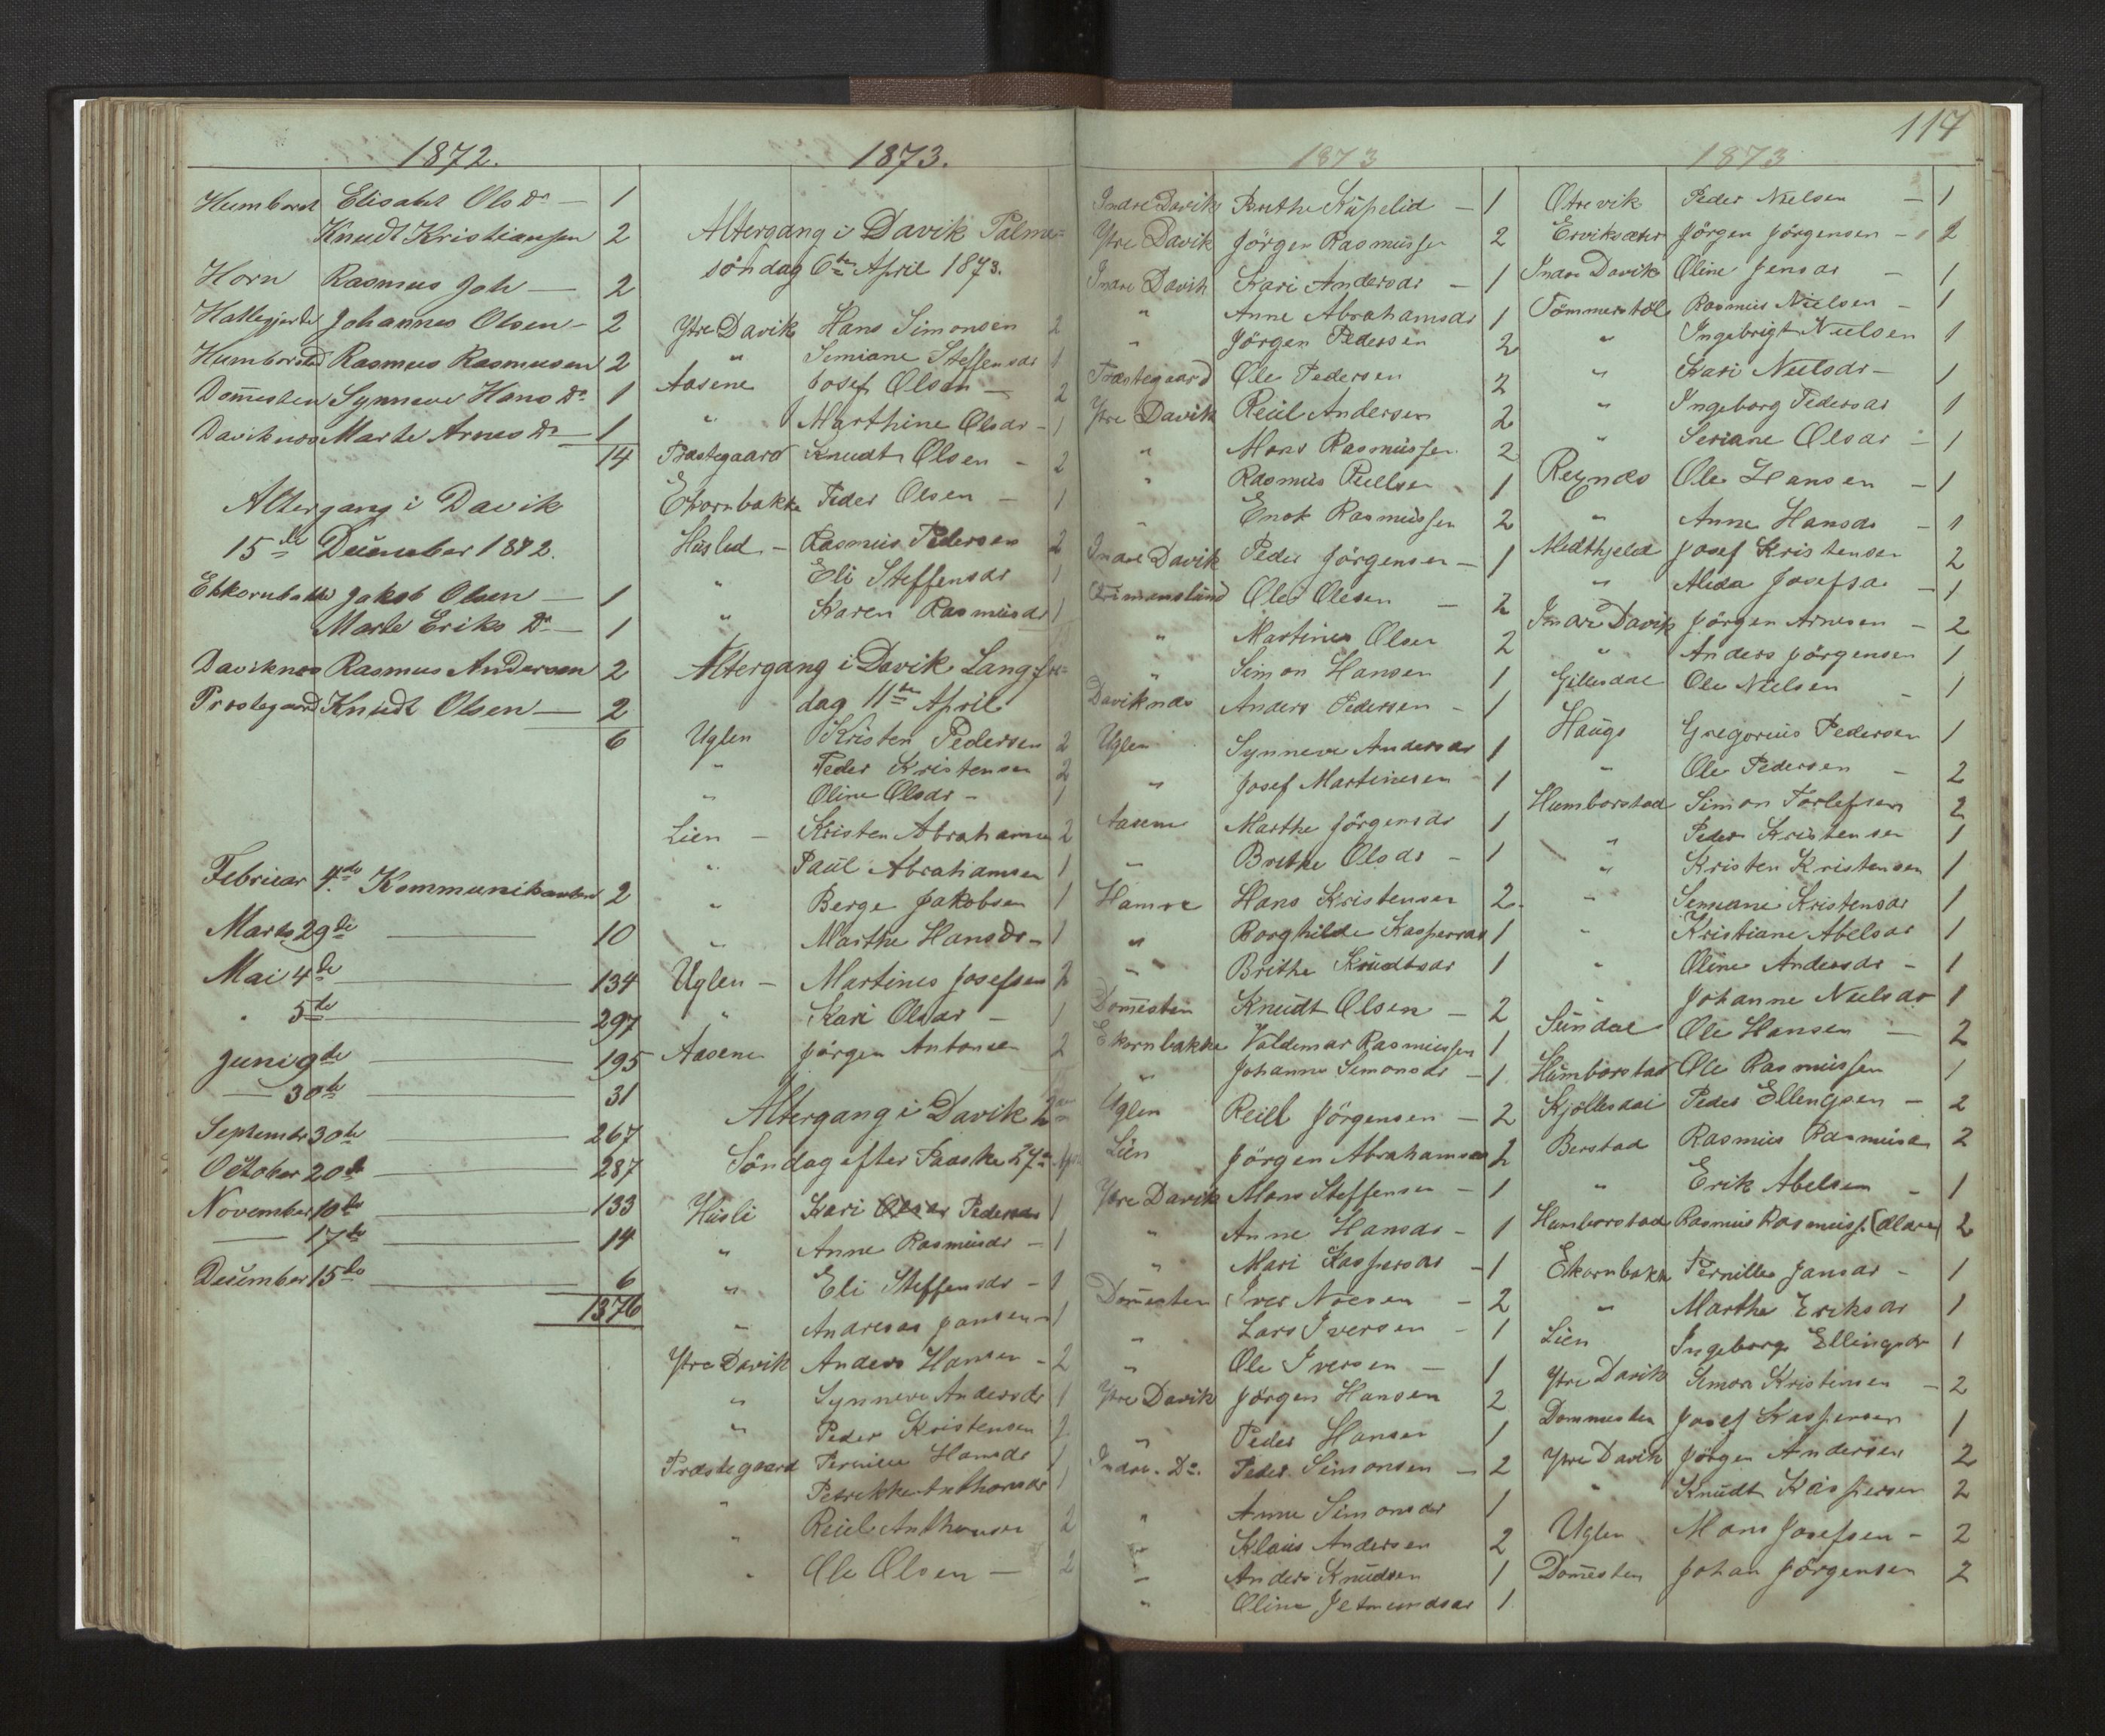 1872.
Humborst Elisabet Ols Dr — 1
Knudt Kristiansen 2
Horn Rasmus Joh — 2
Hallegjerde Johannes Olsen — 2
Humborstad Rasmus Rasmusen 2
Dom̄esten Synneve Hans Dr 1
Daviknes Marte Arnes Dr — 1
14
Altergang i Davik
15de December 1872.
Ekkornbakke Jakob Olsen — 1
Marte Eriks Dr — 1
Daviknes Rasmus Andersen 2
Præstegaard Knudt Olsen — 2
6
Februar 4de Kommunikanter 2
Marts 29de — 10
Mai 4de — 134
" 5te — 297
Juni 9de — 195
— 30te — 31
Septembr 30te — 267
October 20de — 287
November 10de — 133
— 17de — 14
December 15de — 6
1376
1873.
Altergang i Davik Palme-
söndag 6te April 1873.
Ytre Davik Hans Simonsen 2
" Simiane Steffensdr 1
Aasene Josef Olsen — 2
" Marthine Olsdr - 1
Præstegaard Knudt Olsen - 2
Ekornbakke Peder Olsen - 1
Husled - Rasmus Pedersen 2
" Eli Steffensdr 1
" Karen Rasmusdr 1
Altergang i Davik Langfre-
dag 11te April
Uglen Kristen Pedersen 2
" Peder Kristensen 2
" Oline Olsdr - 1
Lien - Kristen Abrahamsen 2
" Paul Abrahamsen 1
" Berge Jakobsen 1
" Marthe Hansdr - 1
Uglen - Martines Josefsen 2
" Kari Olsdr - 1
Aasene Jörgen Antonsen 2
Altergang i Davik 2den
Söndag efter Paaske 27de Apr
Husli Kari Olsdr Pedersdr 1
" Anne Rasmusdr - 1
" Eli Steffensdr - 1
" Andreas Jansen - 1
Ytre Davik Anders Hansen - 2
" Synneve Andersdr 1
" Peder Kristensen 2
Præstegaard Pernille Hansdr 1
" Petrikke Anthonsdr 1
" Reiel Anthonsen 2
" Ole Olsen — 2
117
1873
Indre Davik Brithe Kupelid - 1
Ytre Davik Jörgen Rasmussen 2
Indre Davik Kari Andersdr - 1
" Anne Abrahamsdr 1
" Jörgen Pedersen 2
Præstegaard Ole Pedersen 2
Ytre Davik Reiel Andersen 2
" Mons Rasmussen 2
" Rasmus Reielsen 1
" Enok Rasmussen 2
Indre Davik Peder Jörgensen - 1
Ole Olesen - 2
" Martines Olsen 2
" Simon Hansen 1
Daviknes Anders Pedersen - 1
Uglen Synneve Andersdr 1
" Josef Martinesen - 1
Aasene Marthe Jörgensdr 1
" Brithe Olsdr - 1
Hamre Hans Kristensen 2
" Borghilde Kaspersdr 1
" Brithe Knudtsdr 1
Dom̄esten Knudt Olsen - 2
Ekornbakke Valdemar Rasmussen 1
" Johanne Simonsdr - 1
Uglen Reiel Jörgensen - 2
Lien Jörgen Abrahamsen 2
Ytre Davik Mons Steffensen - 1
" Anne Hansdr - 1
" Mari Kaspersdr - 1
Dom̄esten Iver Noesen - 2
" Lars Iversen - 1
" Ole Iversen - 1
Ytre Davik Jörgen Hansen 2
" Peder Hansen 1
Indre Do. Peder Simonsen - 2
" Anne Simonsdr 1
" Klaus Andersen 2
" Anders Knudsen 1
" Oline Jetmundsdr 1
1873
Otrevik Peder Nielsen - 1
Erviksæter Jörgen Jörgensen - 2
Indre Davik Oline Jensdr - 1
Tömmerstöl Rasmus Nielsen - 1
" Ingebrigt Nielsen 1
" Kari Nielsdr - 1
" Ingeborg Pedersdr 1
" Seriane Olsdr - 1
Reynes Ole Hansen - 1
" Anne Hansdr - 1
Midthjeld Josef Kristensen 2
" Alida Josefsdr - 1
Indre Davik Jörgen Arnesen - 2
" Anders Jörgensen 1
Gillesdal Ole Nielsen - 1
Hauge Gregorius Pedersen 1
" Ole Pedersen - 2
Humborstad Simon Torlefsen 2
" Peder Kristensen 1
" Kristen Kristensen 1
" Simiane Kristensdr 1
" Kristiane Abelsdr 1
" Oline Andersdr - 1
" Johanne Nielsdr 1
Sundal Ole Hansen - 2
Humborstad Ole Rasmussen 1
Kjöllesdal Peder Ellengsen - 2
Berstad Rasmus Rasmusen 2
" Erik Abelsen - 1
Humborstad Rasmus Rasmuss. (Eldre) 2
Ekornbakke Pernille Jansdr - 1
" Marthe Eriksdr 1
Lien Ingeborg Ellingsdr 1
Ytre Davik Simon Kristensen - 2
Dommesten Josef Kaspersen 1
Ytre Davik Jörgen Andersen 2
" Knudt Kaspersen 2
Uglen Mons Josefsen - 2
Dom̄esten Johan Jörgensen 2